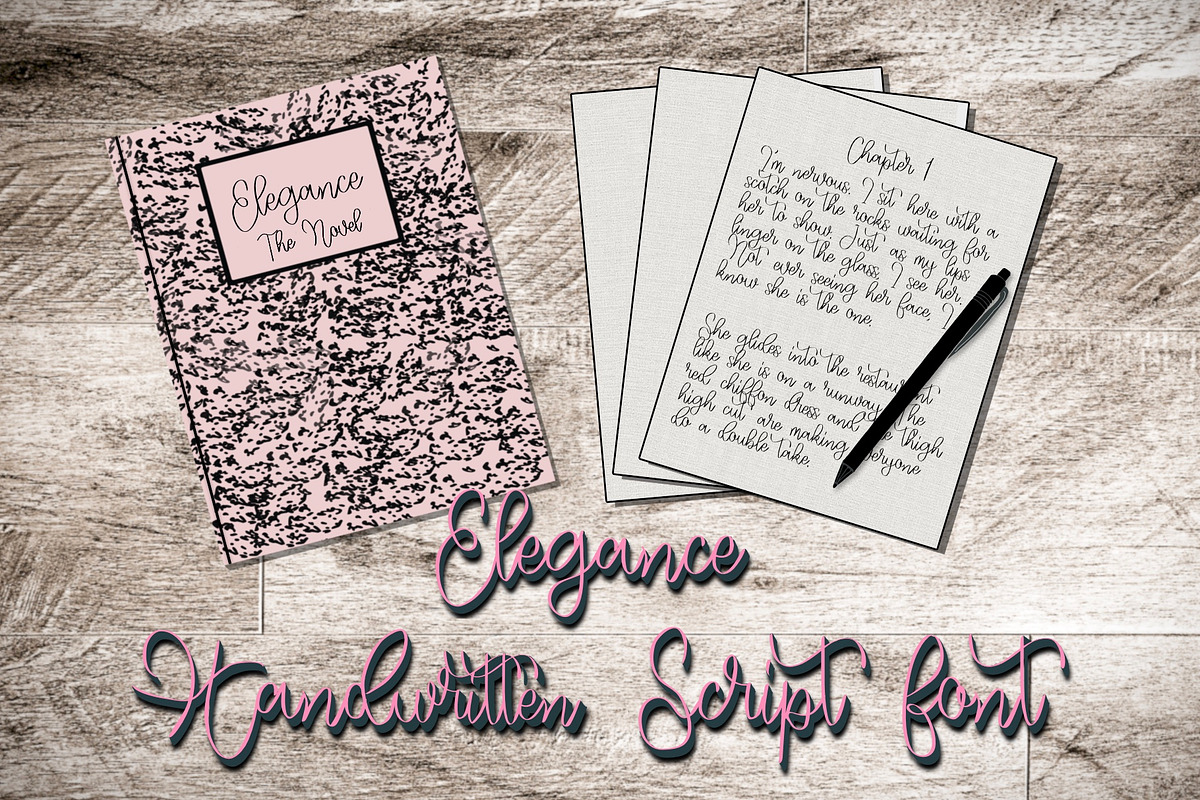 Elegance
The Novel
Chapter 1
I'm nervous. I sit here with a
scotch on the rocks waiting for
her to show. Just as my lips
linger on the glass, I see her.
Not ever seeing her face, I
know she is the one.
She glides into the restaurant
like she is on a runway. The
red chiffon dress and the thigh
high cut are making everyone
do a double take.
Elegance
Handwritten Script font